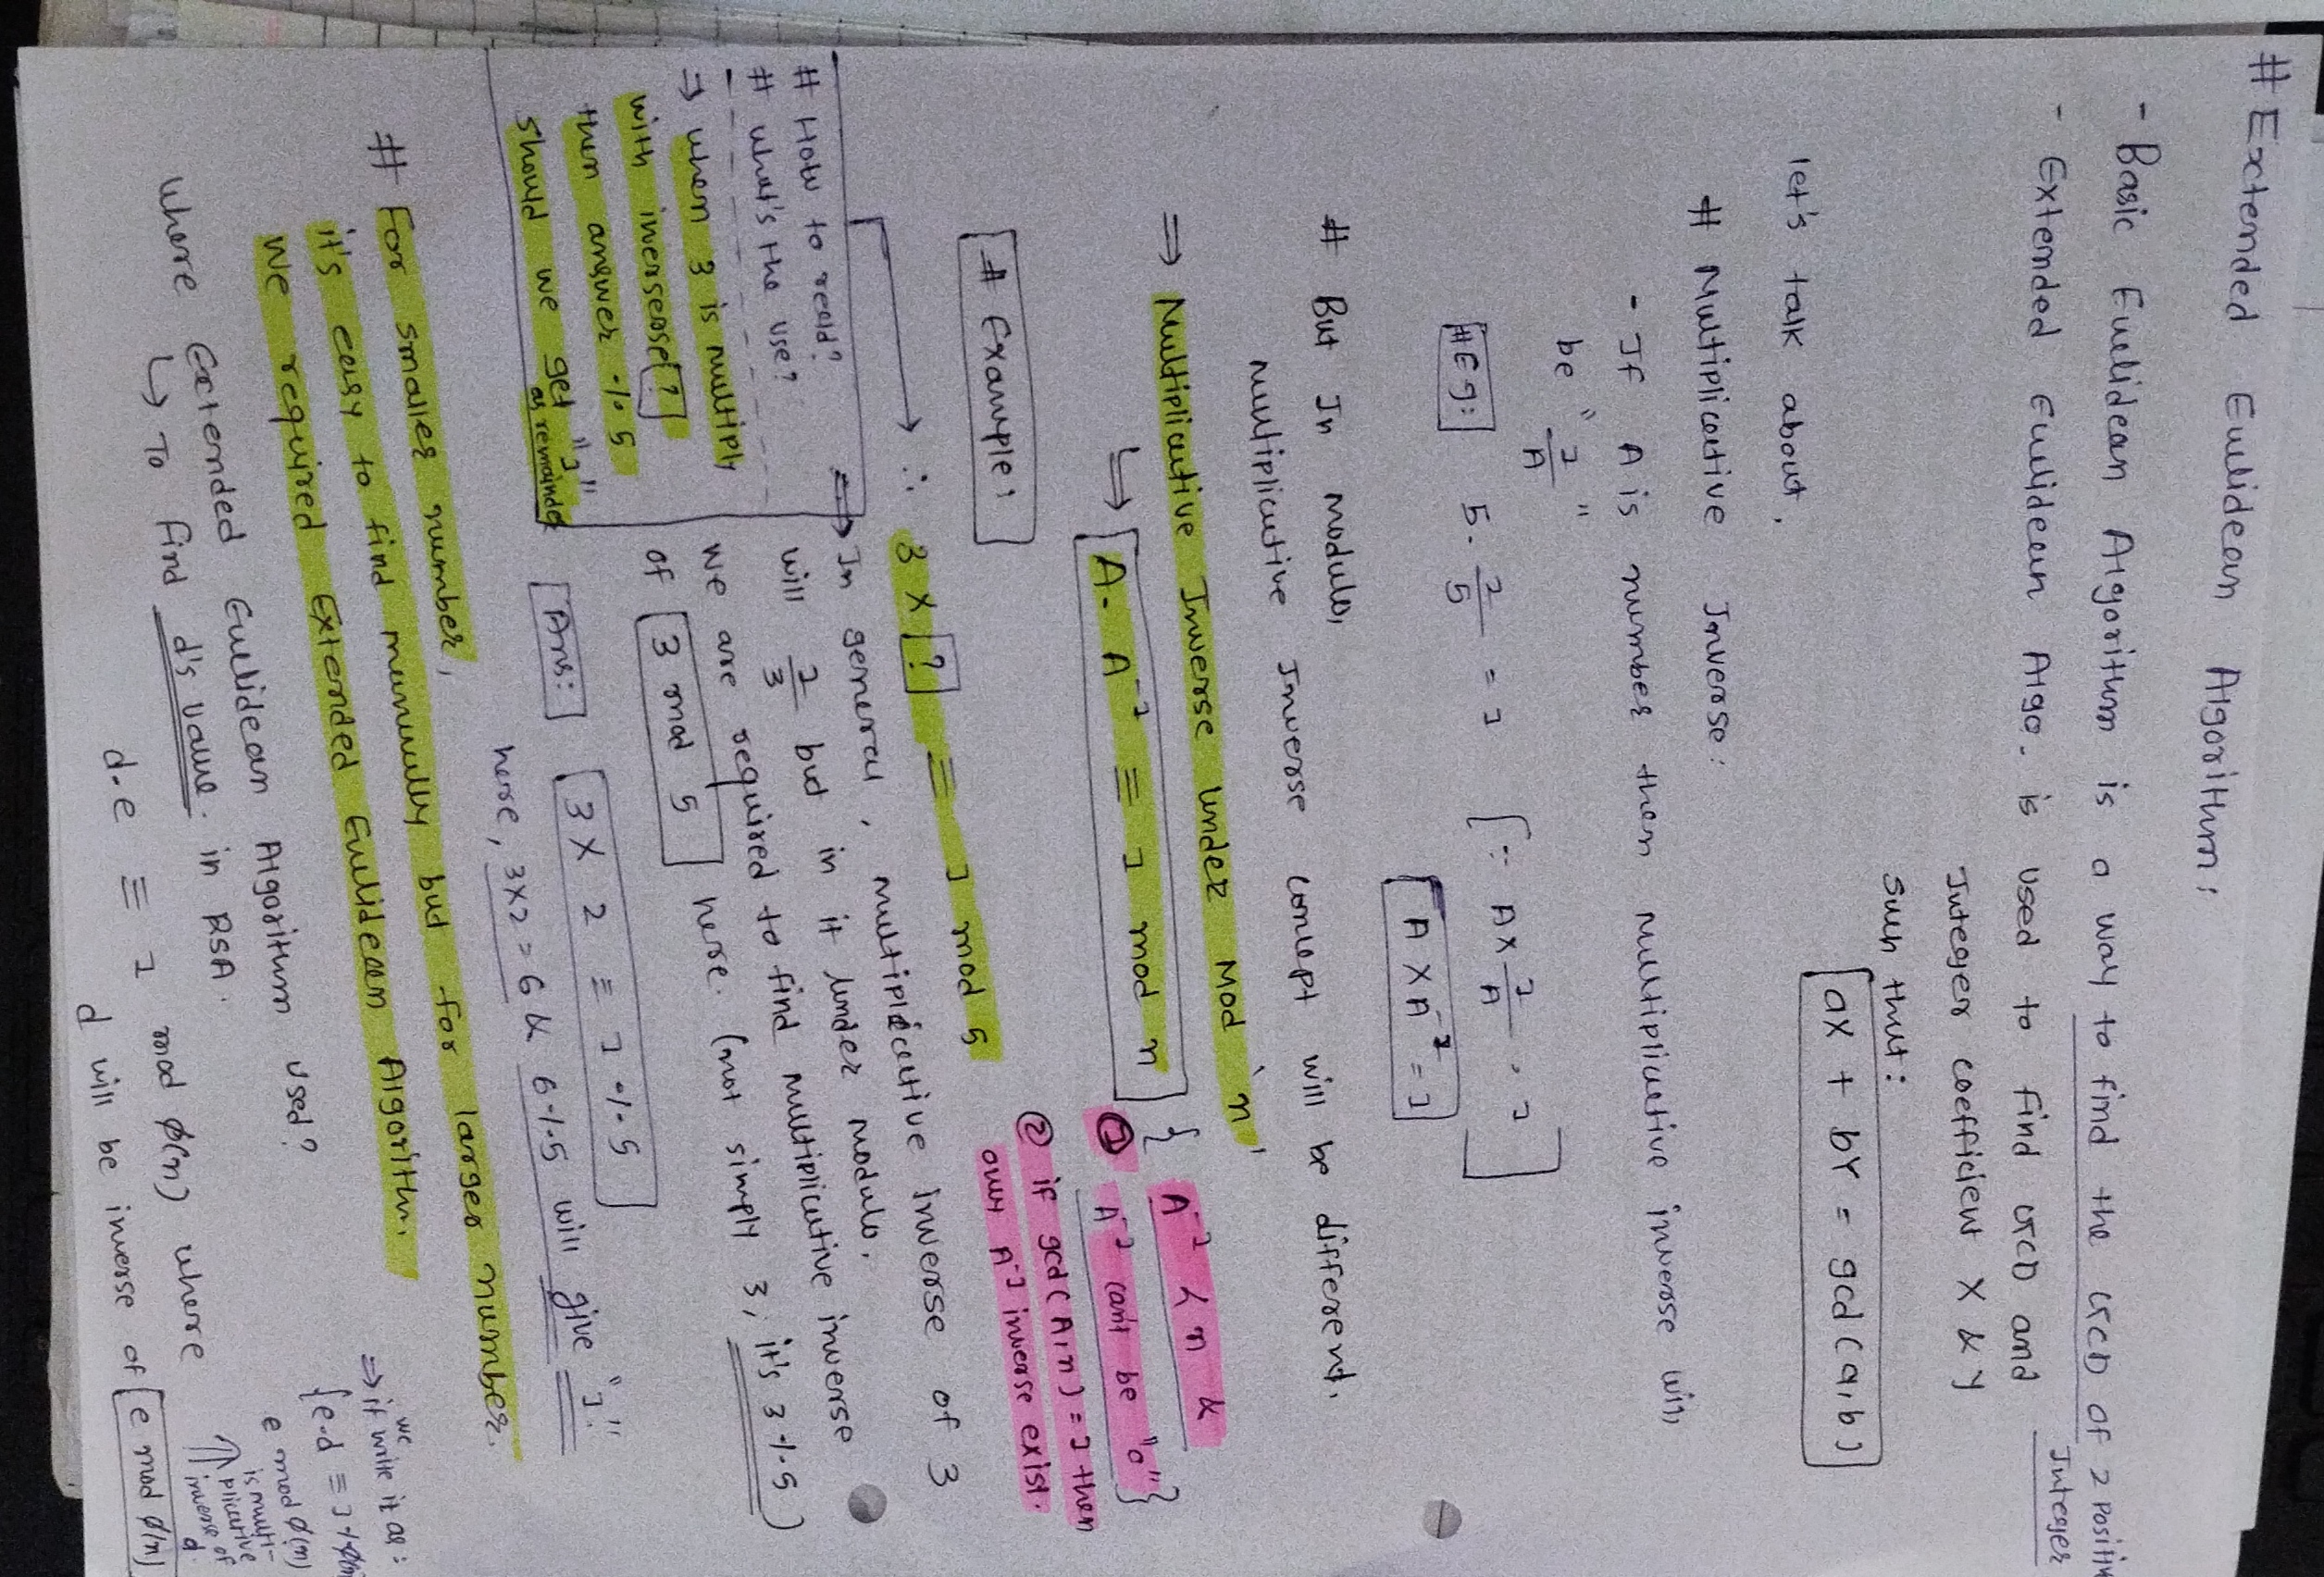 # Extended Eulidean Algorithm:
- Basic Eulidean Algorithm is a way to find the GCD of 2 positiv
Integer
- Extended Eulidean Algo. is used to find GCD and
Integer coefficient X & Y
such that:
ax + by = gcd(a,b)
let's talk about,
# Multiplicative Inverse:
- If A is number then multiplicative inverse will
be "1/A"
#Eg: 5 · 1/5 = 1 [∵ A × 1/A = 1]
A × A⁻¹ = 1
# But In modulo,
multiplicative Inverse concept will be different.
⇒ Multiplicative Inverse under Mod 'n'
↳ A · A⁻¹ ≡ 1 mod n { A⁻¹ < n &
① A⁻¹ can't be "0" }
② if gcd(A,n) = 1 then
our A⁻¹ inverse exist.
# Example:
∴ 3 × ? ≡ 1 mod 5
# How to read?
# what's the use?
⇒ when 3 is multiply
with inverse ?
then answer % 5
should we get "1"
as remainder
⇒ In general, multiplicative Inverse of 3
will 1/3 but in it under modulo,
we are required to find multiplicative inverse
of 3 mod 5 here. (not simply 3, it's 3 % 5)
Ans: 3 × 2 ≡ 1 % 5
here, 3×2 = 6 & 6 % 5 will give "1".
# For smaller number,
it's easy to find manually but for larger number.
we required Extended Eulidean Algorithm.
where Extended Eulidean Algorithm used?
↳ To find d's value in RSA.
d·e ≡ 1 mod φ(n) where
d will be inverse of e mod φ(n)
⇒ if we write it as:
{e·d ≡ 1 % φ(n)
e mod φ(n)
is multi-
plicative
inverse of
d.